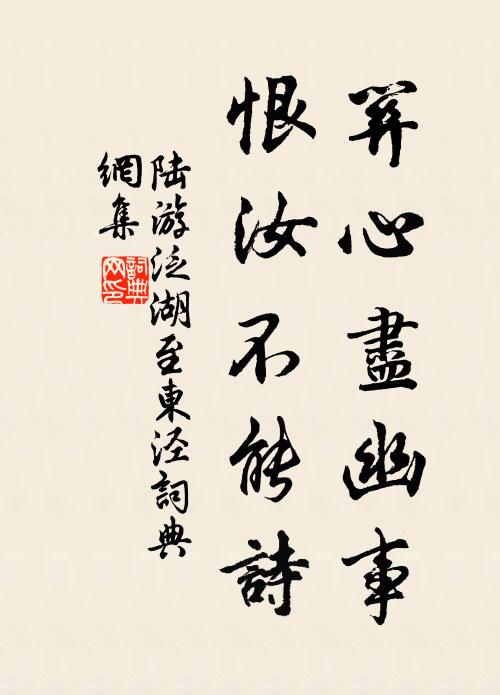 關心盡幽事
恨汝不能詩
陆游泛湖至東涇詞典
網集
詞典
网印